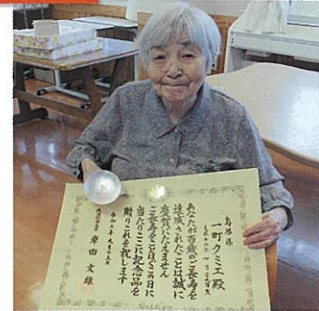 島根県
一町クミエ殿
あなたが百歳のご長寿を
達成されたことは誠に
慶賀にたえません
ご長寿をことほぐこの日に
当たりここに記念品を
贈りこれを祝します
岸田文雄